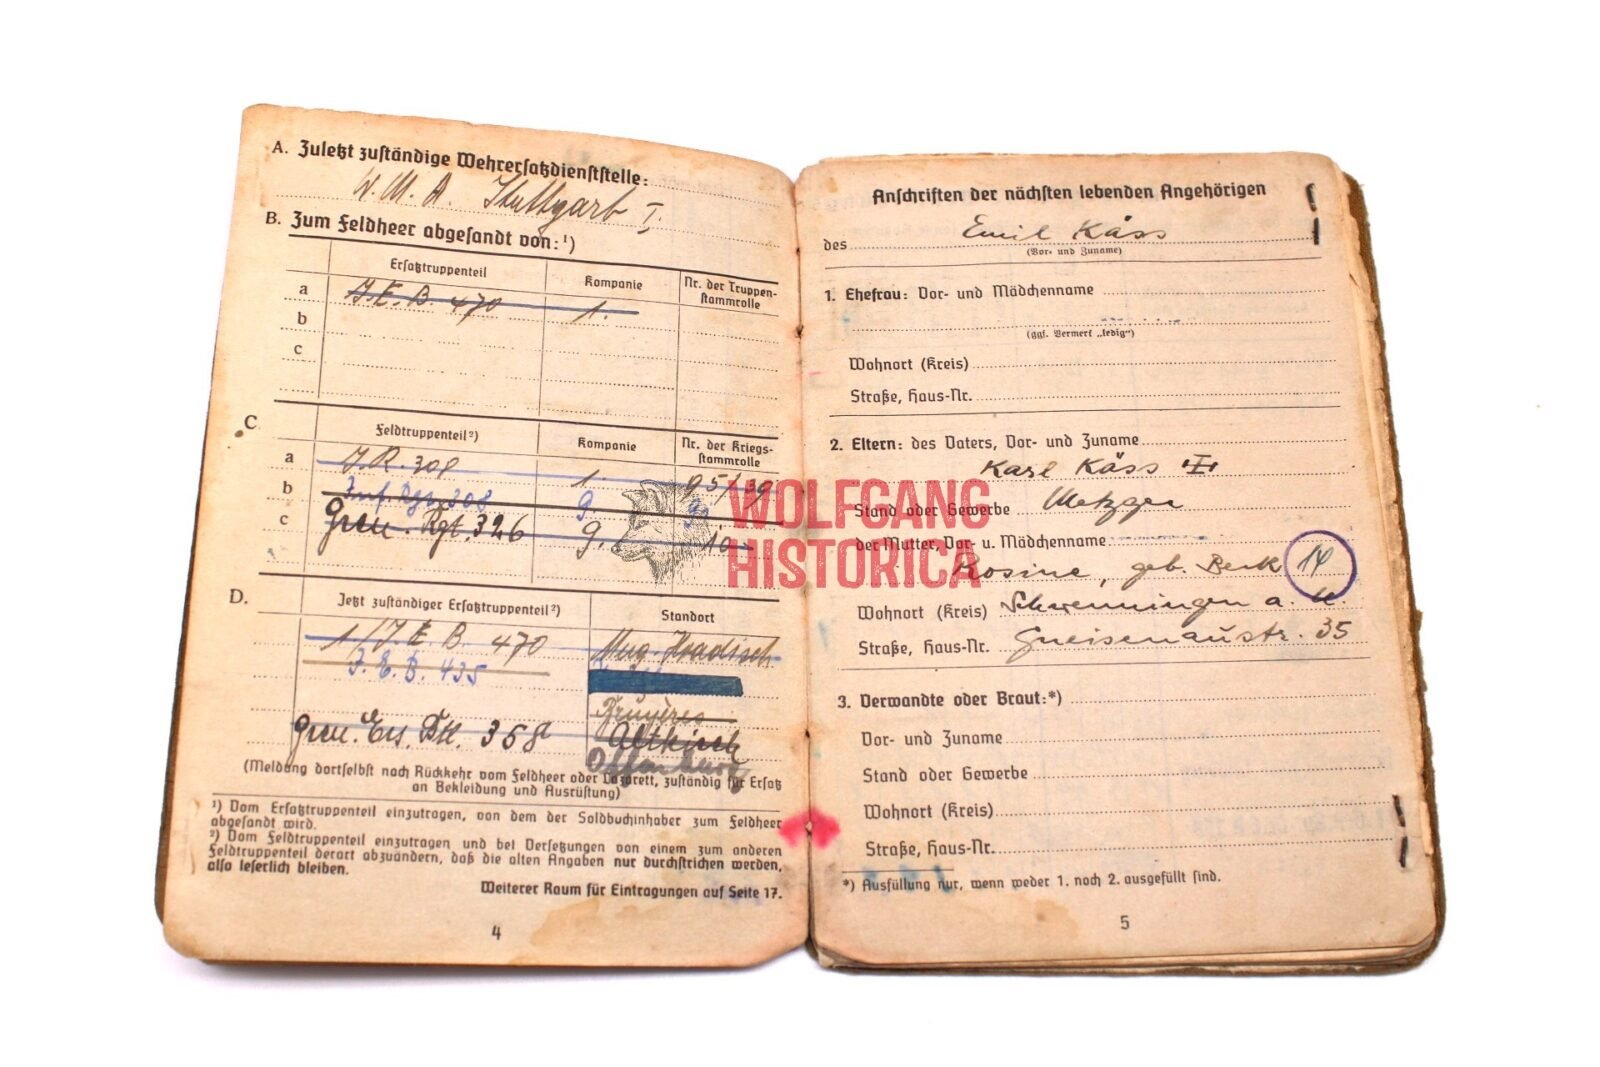 A. Zuletzt zuständige Wehrersatzdienststelle:
W. M. A. Stuttgart I.
B. Zum Feldheer abgesandt von:¹)
Ersatztruppenteil
Kompanie
Nr. der Truppen-
stammrolle
a J. E. B. 470 1.
b
c
C
Feldtruppenteil²)
Kompanie
Nr. der Kriegs-
stammrolle
a J.R. 308 1. 95/39
b Inf. Rgt. 308 9
c Gren. Rgt. 326 9. 10
D.
Jetzt zuständiger Ersatztruppenteil²)
Standort
1/J. E. B. 470 Hradisch
J. E. B. 435
Bruyères
Gren. Ers. Btl. 358 Altkirch
Offenburg
(Meldung dortselbst nach Rückkehr vom Feldheer oder Lazarett, zuständig für Ersatz
an Bekleidung und Ausrüstung)
¹) Vom Ersatztruppenteil einzutragen, von dem der Soldbuchinhaber zum Feldheer
abgesandt wird.
²) Vom Feldtruppenteil einzutragen und bei Versetzungen von einem zum anderen
Feldtruppenteil derart abzuändern, daß die alten Angaben nur durchstrichen werden,
also leserlich bleiben.
Weiterer Raum für Eintragungen auf Seite 17.
4
Anschriften der nächsten lebenden Angehörigen
des Emil Käss
(Vor- und Zuname)
1. Ehefrau: Vor- und Mädchenname
(ggf. Vermerk „ledig“)
Wohnort (Kreis)
Straße, Haus-Nr.
2. Eltern: des Vaters, Vor- und Zuname
Karl Käss
Stand oder Gewerbe Metzger
der Mutter, Vor- u. Mädchenname
Rosine, geb. Benk 14
Wohnort (Kreis) Schwenningen a. N.
Straße, Haus-Nr. Gneisenaustr. 35
3. Verwandte oder Braut:*)
Vor- und Zuname
Stand oder Gewerbe
Wohnort (Kreis)
Straße, Haus-Nr.
*) Ausfüllung nur, wenn weder 1. noch 2. ausgefüllt sind.
5
WOLFGANG
HISTORICA